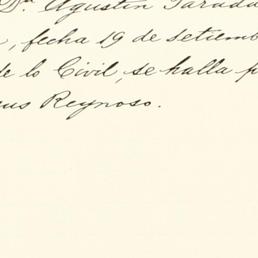 Dn. Agustín Parada
, fecha 19 de setiemb
de lo Civil, se halla p
us Reynoso.